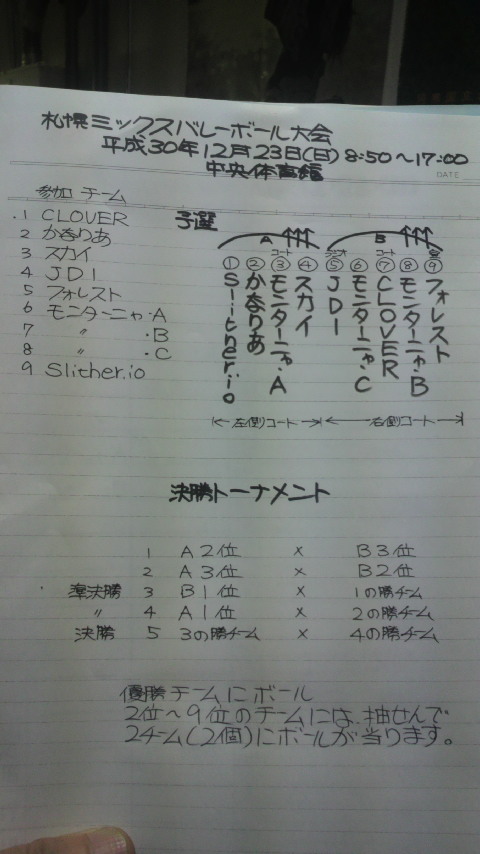 札幌ミックスバレーボール大会
平成30年12月23日(日) 8:50〜17:00
中央体育館
DATE
参加チーム
1 CLOVER
2 かなりあ
3 スカイ
4 JDI
5 フォレスト
6 モンターニャ・A
7 〃 ・B
8 〃 ・C
9 Slither.io
予選
A
B
① Slither.io
② かなりあ
コート ③ モンターニャ・A
④ スカイ
⑤ JDI
⑥ モンターニャ・C
コート ⑦ CLOVER
⑧ モンターニャ・B
⑨ フォレスト
左側コート
右側コート
決勝トーナメント
1 A2位 × B3位
2 A3位 × B2位
準決勝 3 B1位 × 1の勝チーム
〃 4 A1位 × 2の勝チーム
決勝 5 3の勝チーム × 4の勝チーム
優勝チームにボール
2位〜9位のチームには、抽せんで
2チーム(2個)にボールが当ります。